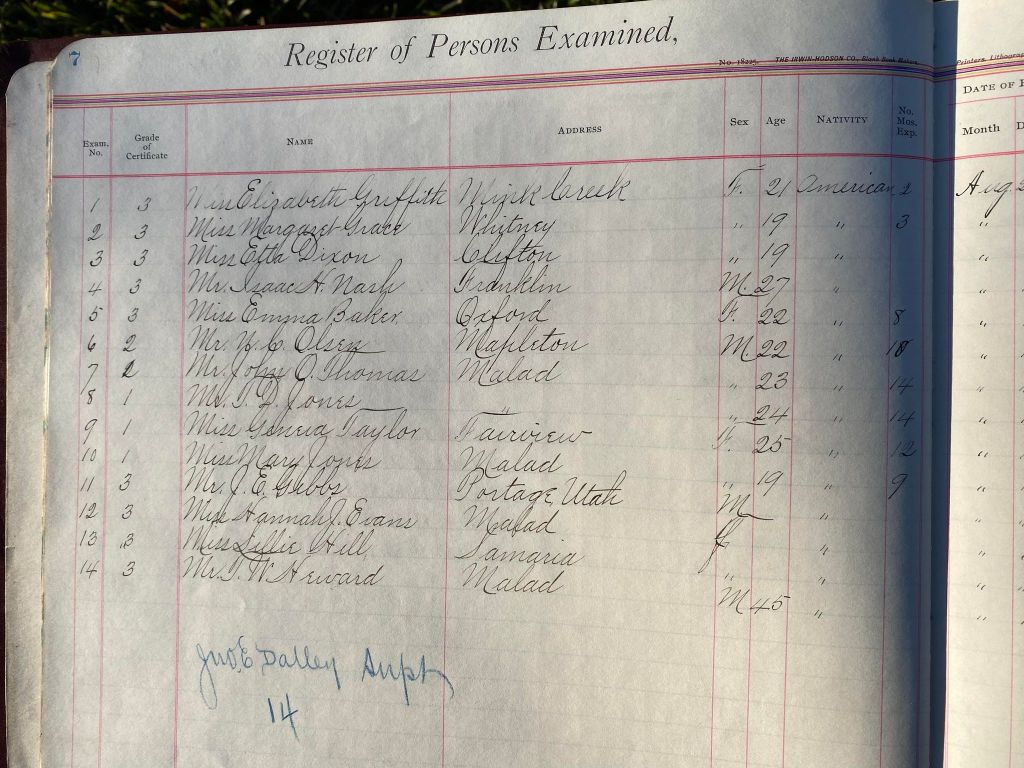 7
Register of Persons Examined,
No. 18225. THE IRWIN-HODSON CO., Blank Book Makers, Printers, Lithograp
Exam. No. Grade of Certificate NAME ADDRESS Sex Age NATIVITY No. Mos. Exp. DATE OF
Month
1 3 Miss Elizabeth Griffith Mink Creek F. 21 American 2 Aug
2 3 Miss Margaret Grace Whitney " 19 " 3 "
3 3 Miss Etta Dixon Clifton " 19 " "
4 3 Mr. Isaac H. Nash Franklin M. 27 " "
5 3 Miss Emma Baker Oxford F. 22 " 8 "
6 2 Mr. Olsen Mapleton M. 22 " 18 "
7 2 Mr. John O. Thomas Malad " 23 " 14 "
8 1 Mr. T. D. Jones " " 24 " 14 "
9 1 Miss Geneva Taylor Fairview F. 25 " 12 "
10 1 Miss Mary Jones Malad " 19 " 9 "
11 3 Mr. J. E. Gibbs Portage Utah M " "
12 3 Miss Hannah J. Evans Malad f " "
13 3 Miss Lillie Hill Samaria " " "
14 3 Mr. T. W. Heward Malad M 45 " "
Jno. E Dalley Supt
14